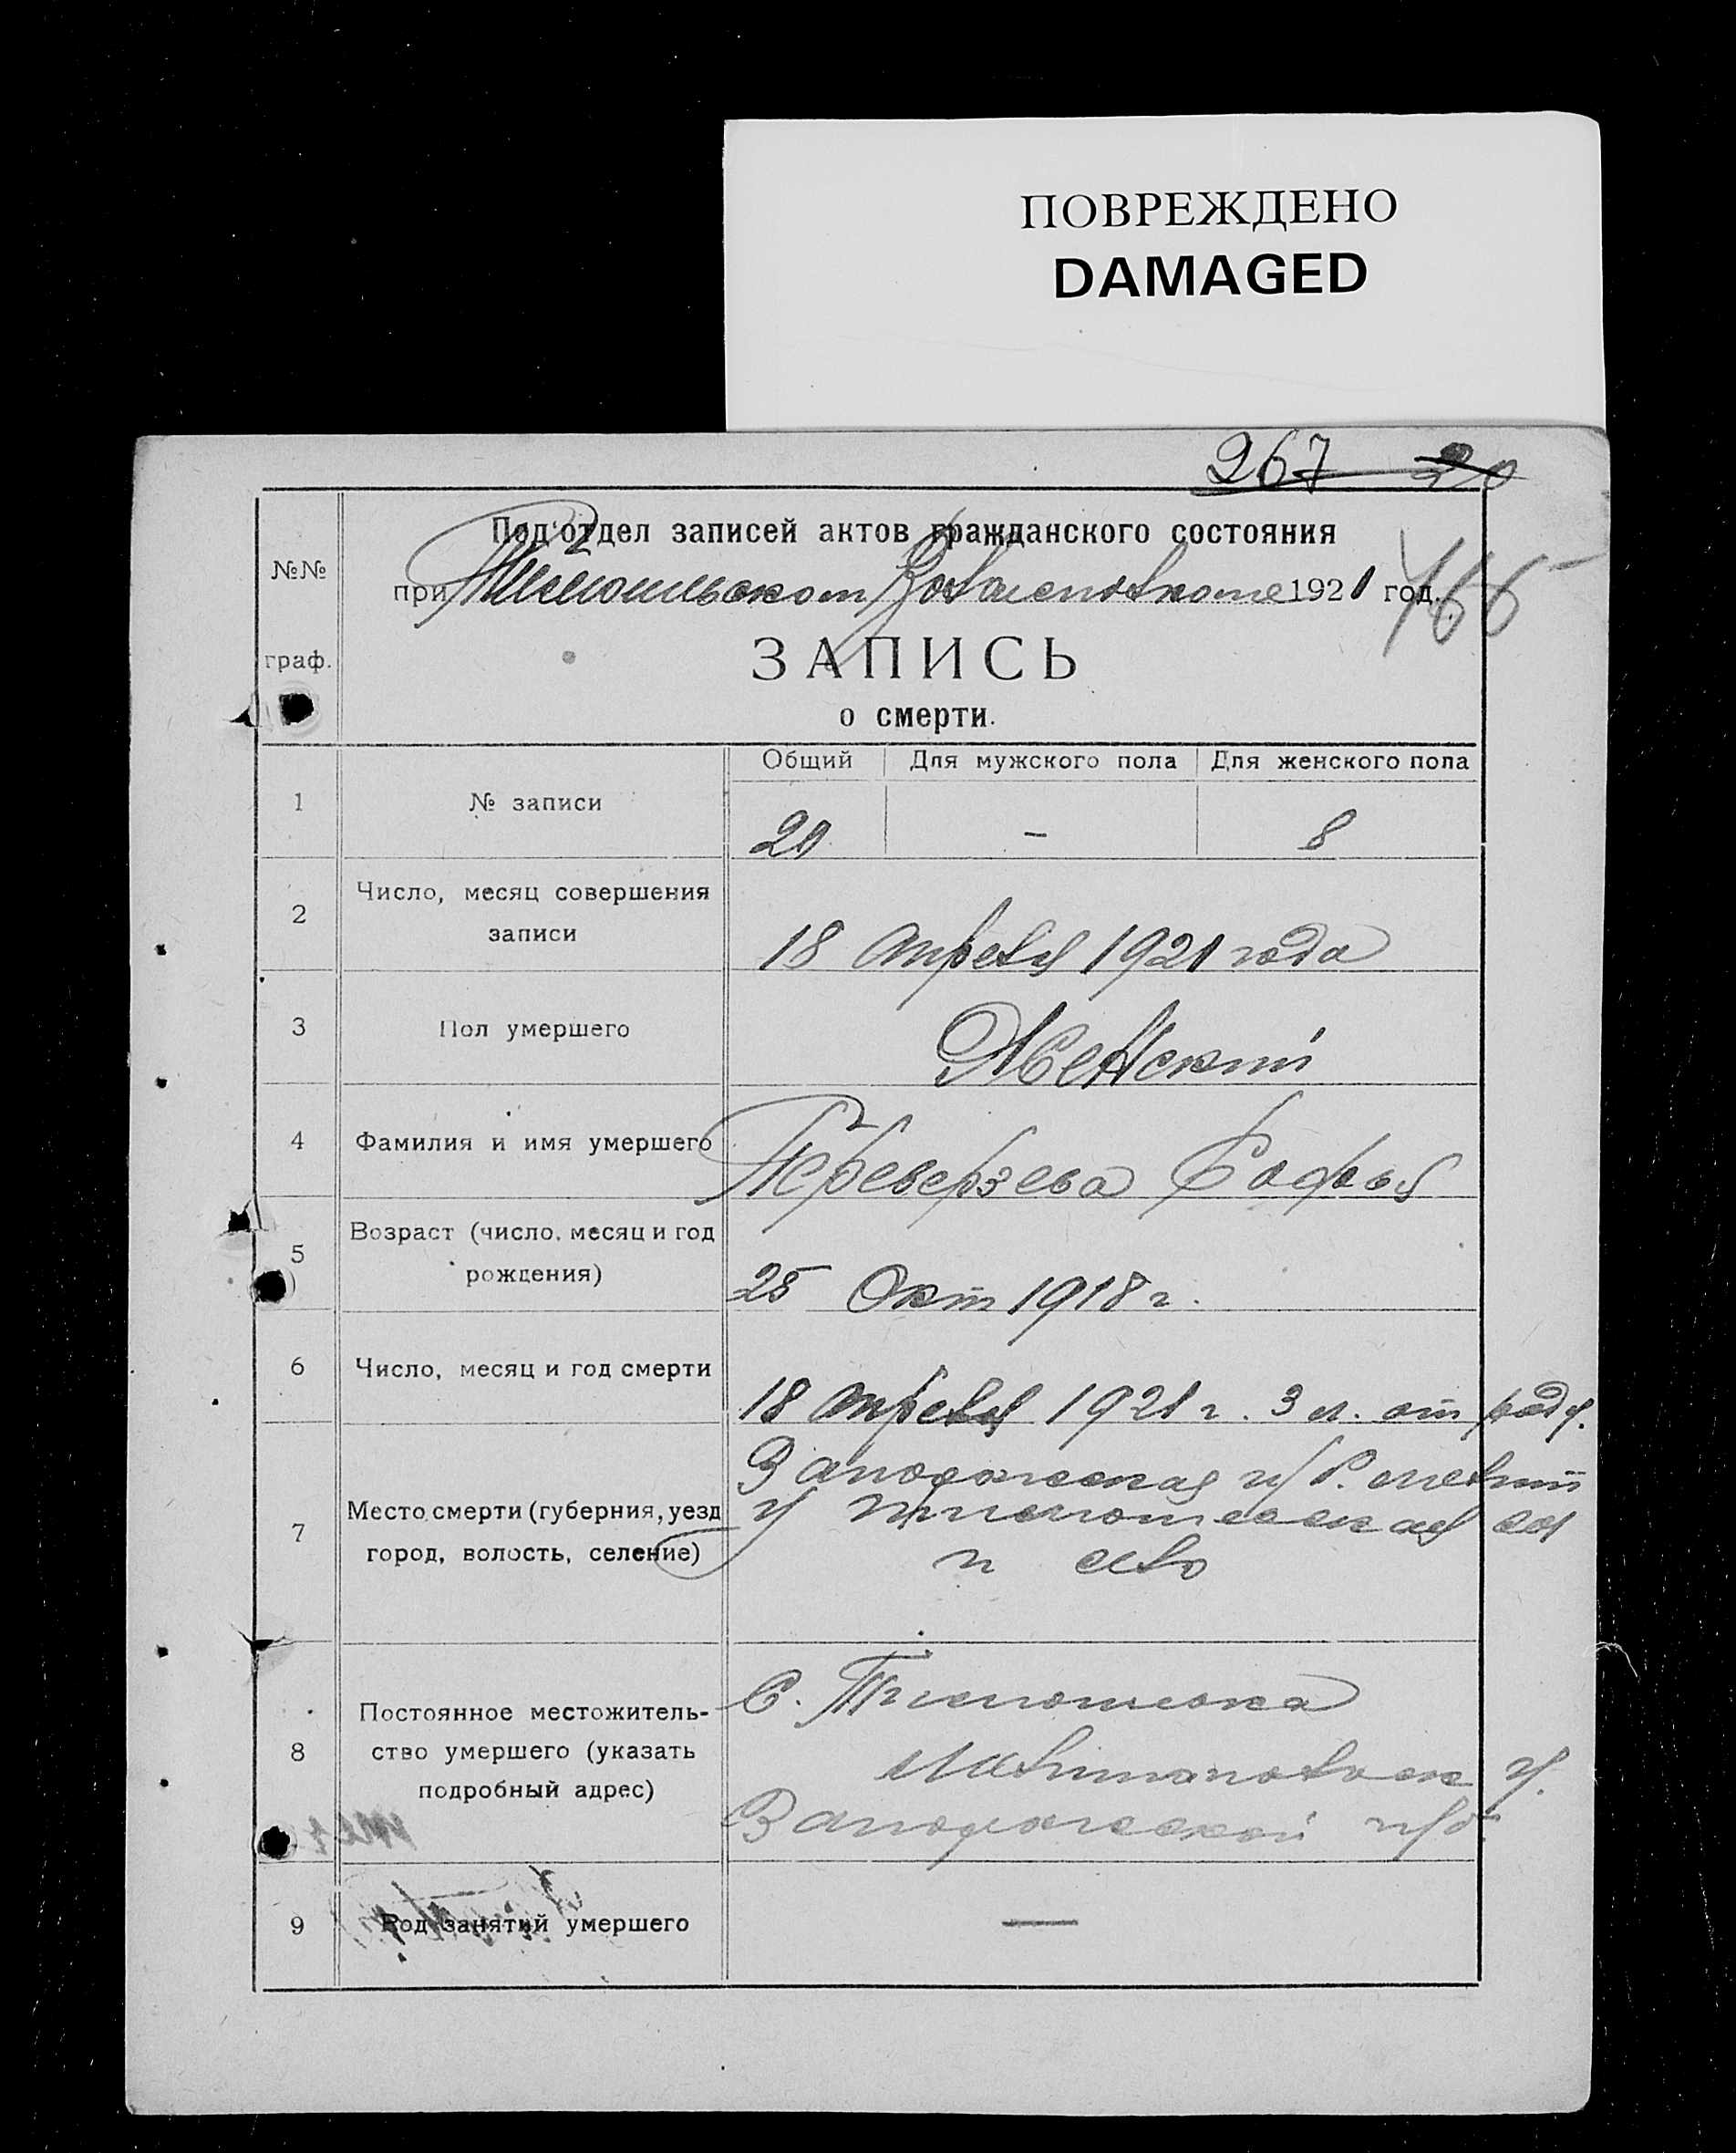 ПОВРЕЖДЕНО
DAMAGED
267 20
Подотдел записей актов гражданского состояния
№№
при 1921 год.
166
граф.
ЗАПИСЬ
о смерти.
Общий Для мужского пола Для женского пола
1 № записи 20 — 8
2 Число, месяц совершения
записи
18 Апреля 1921 года
3 Пол умершего Женский
4 Фамилия и имя умершего Переверзева Софья
5 Возраст (число, месяц и год
рождения)
25 Окт 1918 г.
6 Число, месяц и год смерти
18 Апреля 1921 г. 3 л. от роду.
7 Место смерти (губерния, уезд
город, волость, селение)
Запорожская г/
у
и село
8 Постоянное местожитель-
ство умершего (указать
подробный адрес)
С. Тимошовка
Мелитопольск у.
Запорожской губ.
9 Род занятий умершего —